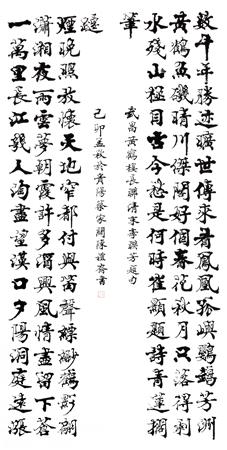 數千年勝迹曠世傳來看鳳凰孤嶼鸚鵡芳洲
黃鶴魚磯晴川傑閣好個春花秋月只落得剩
水殘山極目古今愁是何時崔顥題詩青蓮擱
筆
武昌黃鶴樓長聯清末李聯芳題句
一萬里長江幾人淘盡望漢口夕陽洞庭遠漲
瀟湘夜雨雲夢朝霞許多酒興風情盡留下蒼
煙晚照放懷天地窄都付與笛聲縹緲鶴影翩
躚
己卯孟秋於貴陽蔡家關陳誼齋書